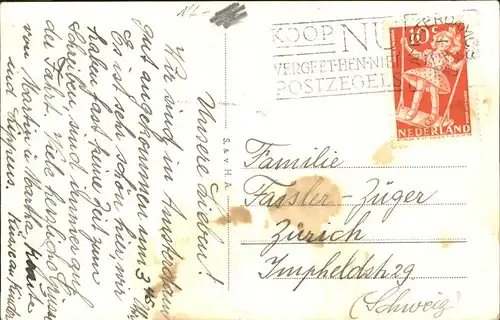 12.-
KOOP NU
VERGEET-HEN-NIET
POSTZEGELS
10c
NEDERLAND
S. & v. H. A.
Unsere Lieben!
Wir sind in Amsterdam
gut angekommen um 3
Es ist sehr schön hier, wir
haben fast keine Zeit zum
Schreiben und immer auf
der Fahrt. Viele herzliche Grüsse
von Martin u. Martha,
und
Küsse an Kinder
Familie
Fässler-Züger
Zürich
Impheldstr 29
(Schweiz)